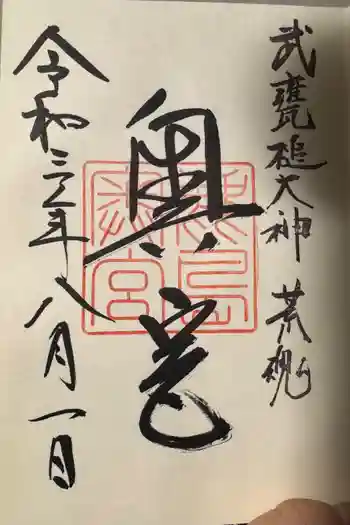 武甕槌大神 荒魂
奥宮
鹿島
奥宮
令和三年八月一日